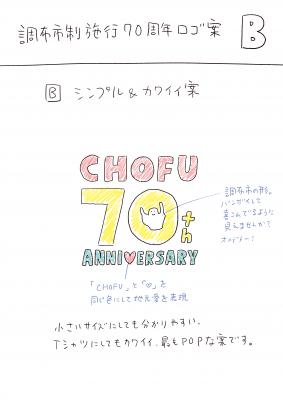 調布市制施行70周年ロゴ案
B
B シンプル&カワイイ案
CHOFU
70th
ANNIVERSARY
調布市の形。
バンザイして
喜こんでるように
見えませんか?
オメデター!
「CHOFU」と「♡」を
同じ色にして地元愛を表現
小さいサイズにしても分かりやすい、
Tシャツにしてもカワイイ、最もPOPな案です。